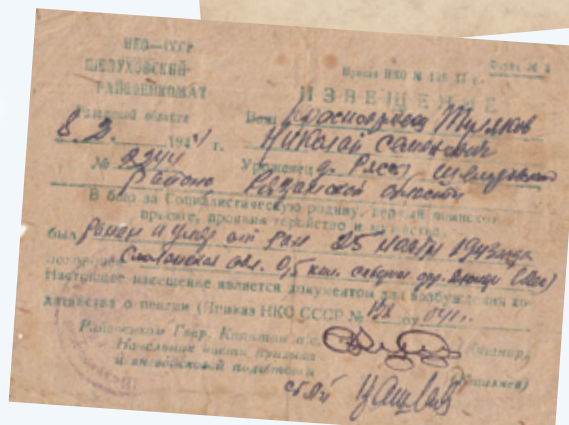 НКО—СССР
ШЕЛУХОВСКИЙ
РАЙВОЕНКОМАТ
Рязанской области
8 2. 1944 г.
№ 2244
Форма № 4
Приказ НКО № 138 41 г.
ИЗВЕЩЕНИЕ
Ваш Красноармеец Туляков
Николай Семенович
Уроженец д. Рясы Шелуховского
Района Рязанской области
В бою за Социалистическую родину, верный воинской
присяге, проявив геройство и мужество,
был ранен и умер от ран 25 ноября 1943 года
похоронен Смоленская обл. 0,5 клм. севернее дер.
Настоящее извещение является документом для возбуждения хо-
датайства о пенсии (Приказ НКО СССР № от
Райвоенком Гвар. Капитан а/с
Начальник части призыва
и вневойсковой подготовки